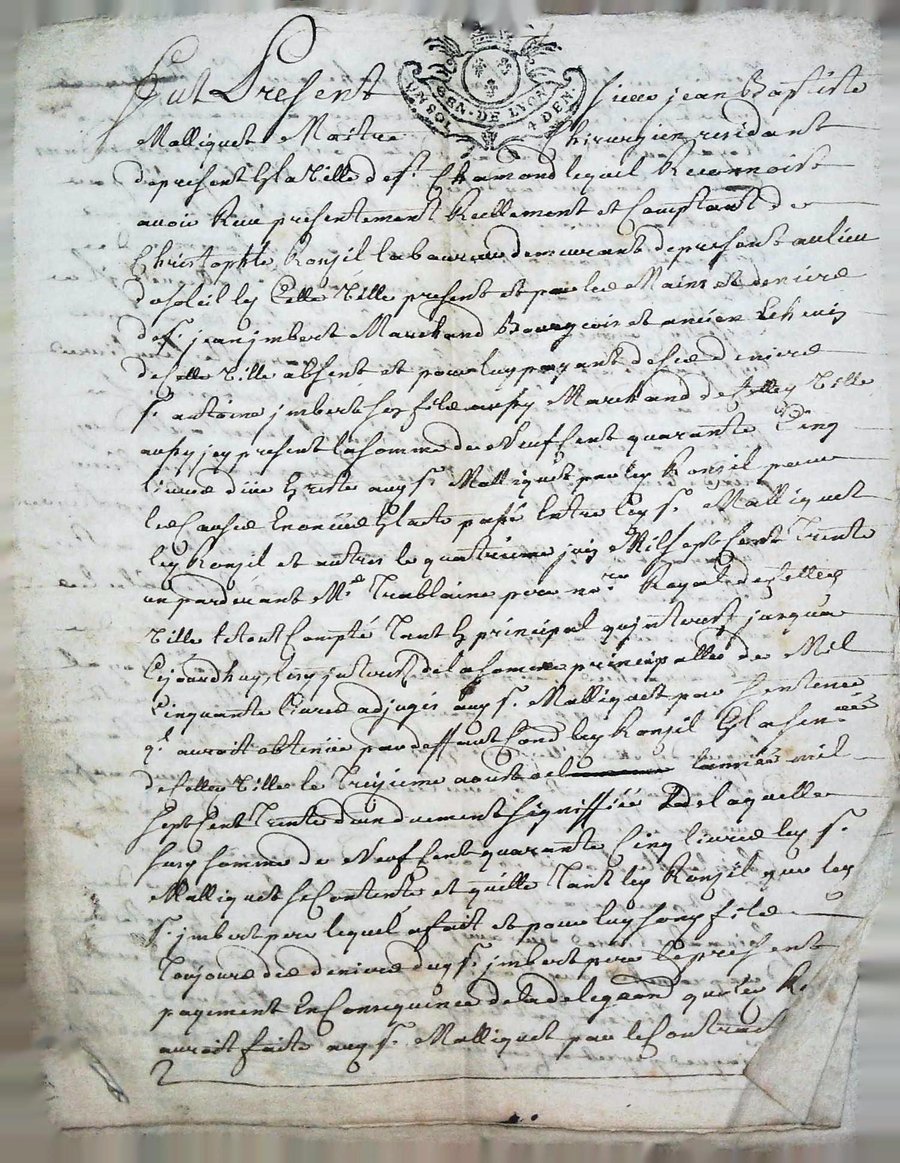 GEN. DE LYON
UN SOL 4 DEN.
Fut Present Sieur jean Baptiste
Malliquet Maitre Chirurgien residant
a present En la Ville de St. Chamond lequel Reconnoist
avoir Receu presentement Reellement et Comptant de
Christophle Ronzil laboureur demeurant a present au lieu
du soleil les Cette Ville present et par les Mains et deniers
de Sr. jean jmbert Marchand Bourgeois et ancien Echevin
de Cette Ville absent et pour luy payant de ses deniers
Sr. antoine jmbert son fils aussy Marchand de Ville
aussy jcy present la somme de Neuf Cent quarante Cinq
livres düe Et reste aud. Sr. Malliquet par led. Ronzil pour
les Causes Enoncées En lacte passé Entre led. Sr. Malliquet
led. Ronzil et autres le quatrieme juin Mil sept Cent Trente
un pardevant Me. Tremblaine pere nore. Royal de
Ville le tout Compté Tant En principal qu'jnterest jusqua
Cejourdhuy, jnterest de la somme principalle de Mil
Cinquante livres adjugés aud. Sr. Malliquet par Sentence
ql. auroit obtenüe par deffaut Cond. led. Ronzil En la Sen.ée
de Ville le Treizieme aoust lannée mil
sept Cent Trente deux duement signiffiée De laquelle
susd. somme de Neuf Cent quarante Cinq livres led. Sr.
Malliquet se Contente et quitte Tant led. Ronzil que led.
Sr. jmbert pere lequel a fait et pour luy sond. fils
Toujours des deniers dud. Sr. jmbert pere le present
payement En Consequence de la delegaõn quil
auroit faite aud. Sr. Malliquet par le Contract